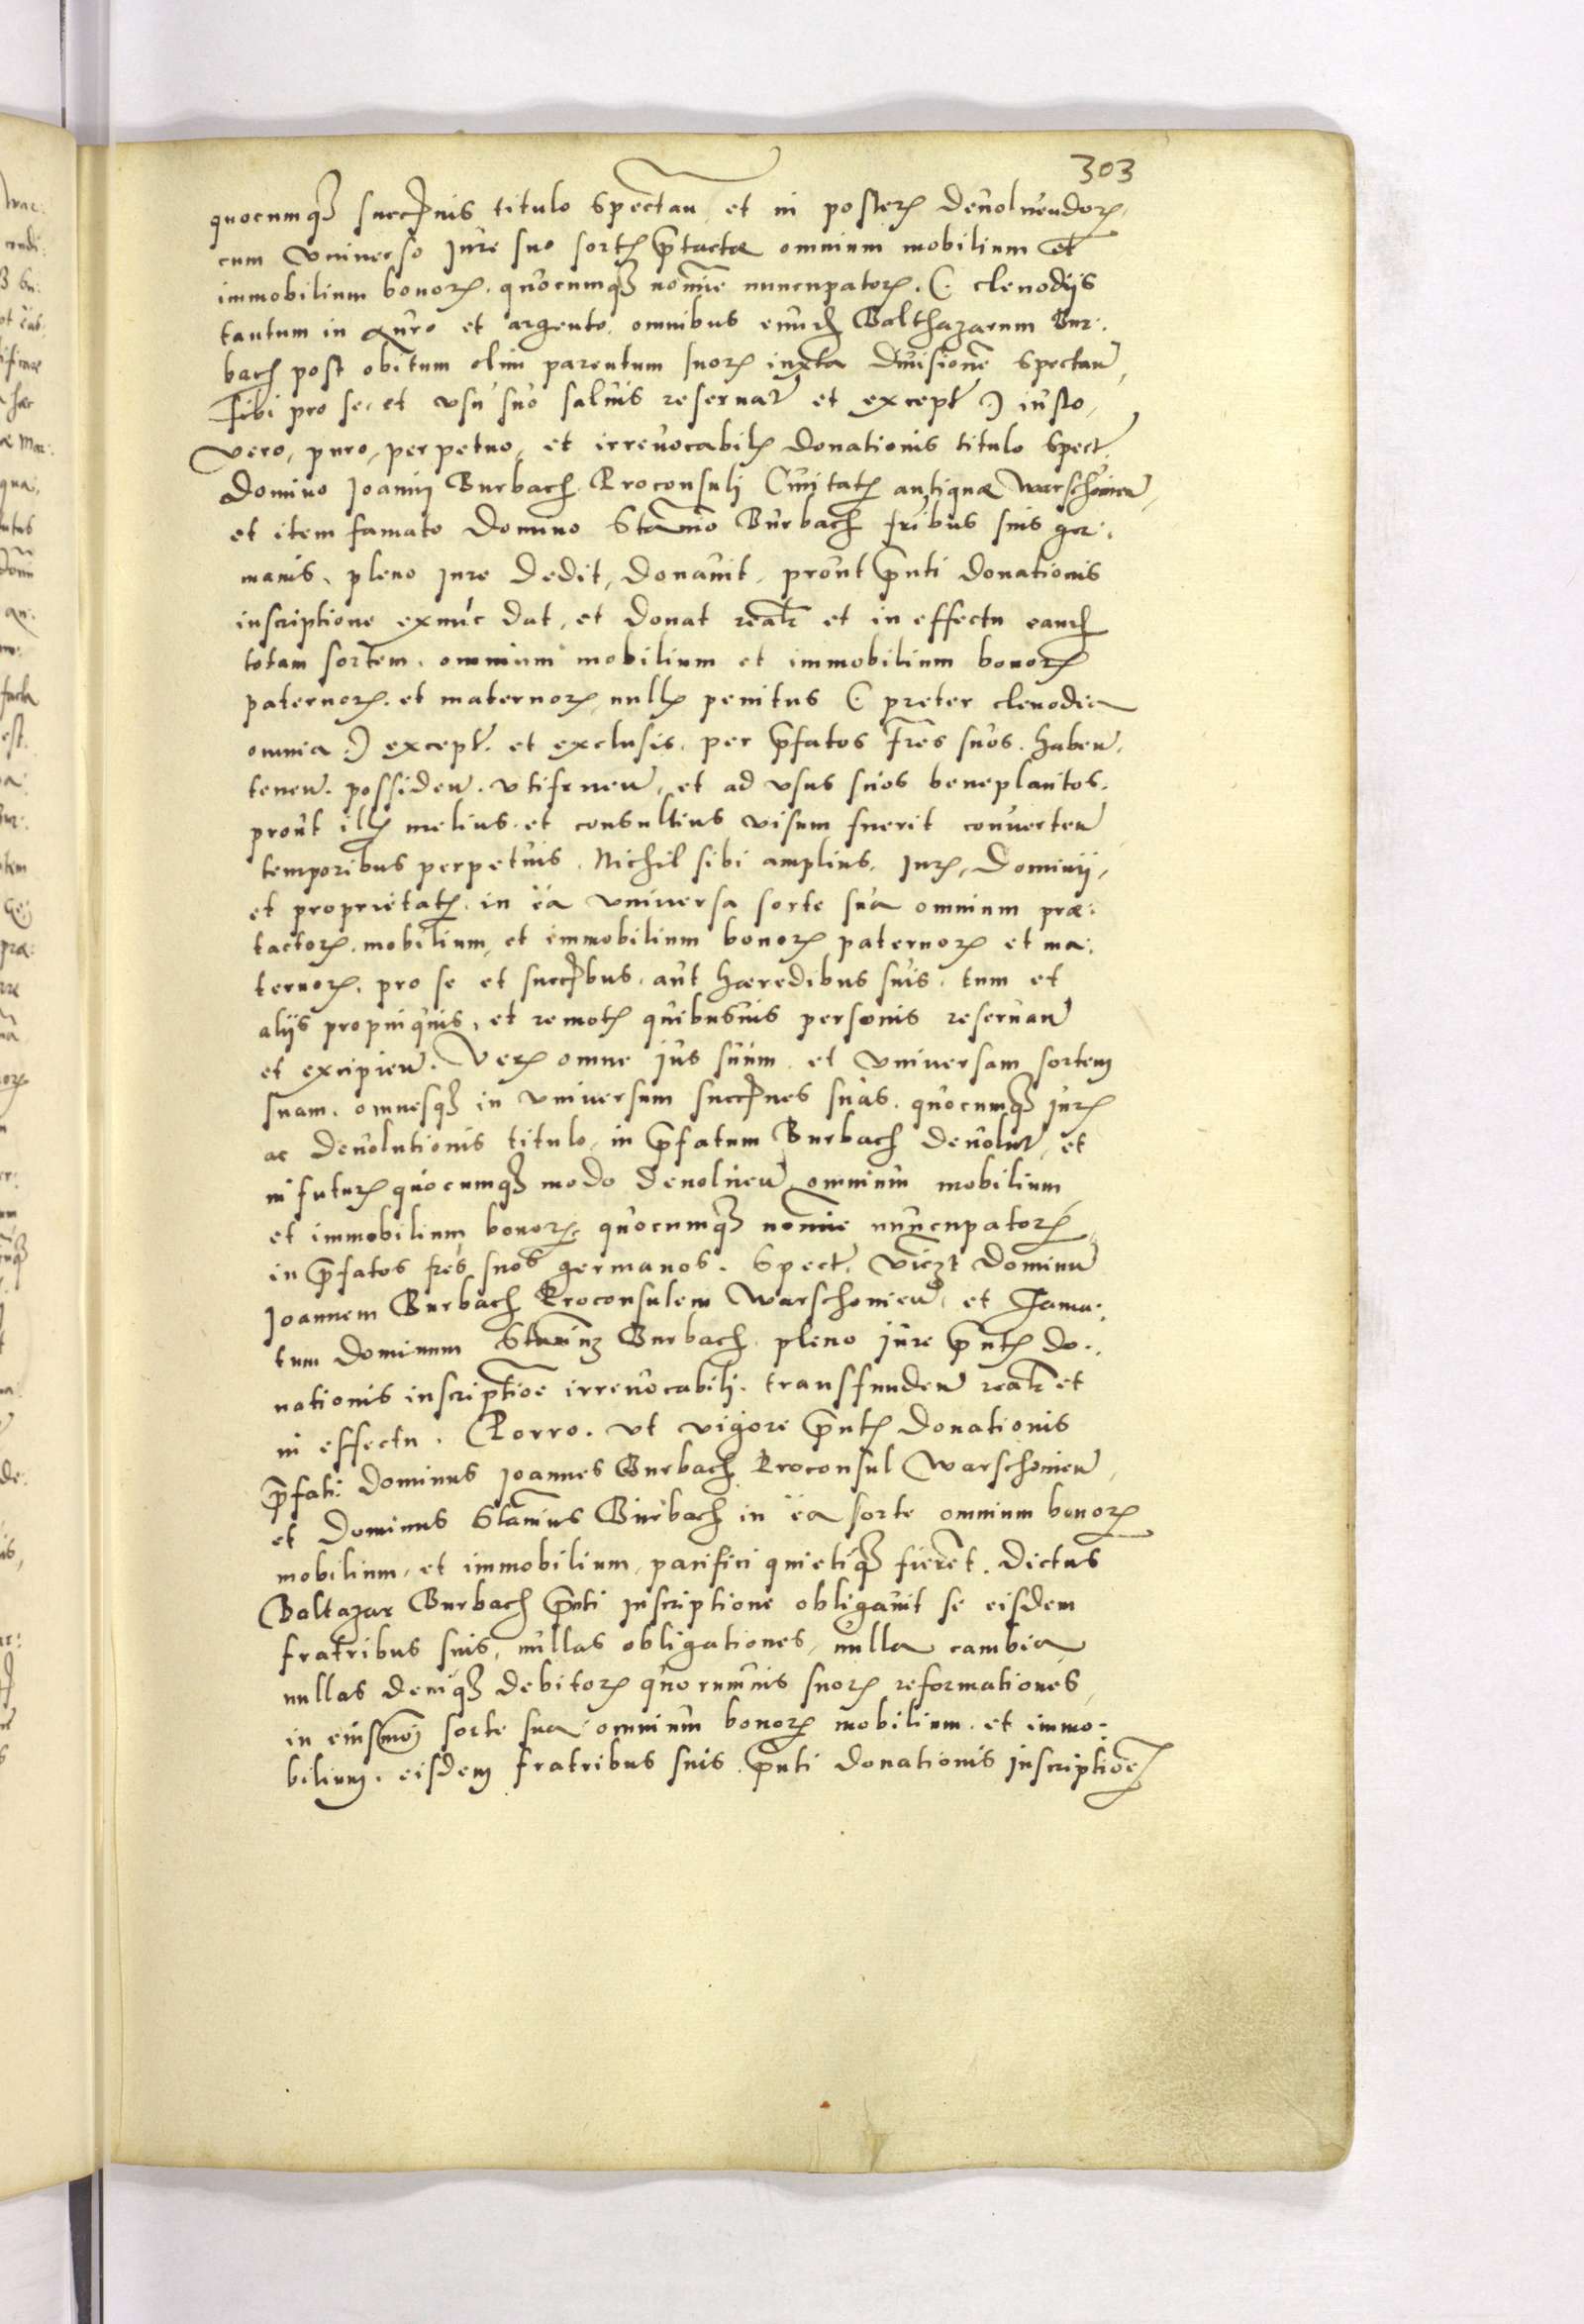 303
quocumq₃ succnis titulo spectan et in posterꝝ devoluendorꝝ
cum vniuerso Jure suo sortꝭ prtactæ omnium mobilium et
immobilium bonorꝝ. quocumq₃ nomie nuncupatorꝝ. (: clenodijs
tantum in auro et argento. omnibus eund Balthazarum Bur:
bach post obitum olim parentum suorꝝ iuxta diuisione spectan
sibi pro se. et vsu suo saluis reseruat et except :) iusto,
vero, puro, perpetuo, et irreuocabilꝭ donationis titulo spect.
Domino Joannj Burbach Proconsulj Ciuitatꝭ antiquæ Warschouien,
et item famato Domino Stanio Burbach fribus suis ger:
manis, pleno jure dedit, donauit, prout prnti donationis
inscriptione exnuc dat, et donat realr et in effectu eand
totam sortem. omnium mobilium et immobilium bonorꝝ
paternorꝝ. et maternorꝝ nullꝭ penitus (: preter clenodia
omnia :) except. et exclusis. per prfatos fres suos. haben.
tenen. possiden. vtifruen, et ad vsus suos beneplacitos.
prout illꝭ melius. et consultius visum fuerit conuerten
temporibus perpetuis. Nichil sibi amplius. jurꝭ, Dominij,
et proprietatꝭ. in ea vniuersa sorte sua omnium præ:
tactorꝝ. mobilium, et immobilium bonorꝝ paternorꝝ et ma:
ternorꝝ. pro se et succbus. aut hæredibus suis. tum et
alijs propinquis, et remotꝭ quibusuis personis reseruan
et excipien. Verꝝ omne jus suum. et vniuersam sortem
suam. omnesq₃ in vniuersum succnes suas. quocumq₃ jurꝭ
ac deuolutionis titulo. in prfatum Burbach deuolut, et
in futurꝝ quocumq₃ modo deuoluen omnium mobilium
et immobilium bonorꝝ quocumq₃ nomie nuncupatorꝝ
in prfatos fres suos germanos. Spect. viczt Dominu
Joannem Burbach Proconsulem Warschouien, et Fama:
tum Dominum Stanin₃ Burbach pleno jure prntꝭ do:
nationis inscriptioe irreuocabilj. transfunden realr et
in effectu. Porro. vt vigore prntꝭ donationis
prfati Dominus Joannes Burbach Proconsul Warschouien,
et Dominus Stanius Burbach in ea sorte omnium bonorꝝ
mobilium, et immobilium, pacifici quietiq₃ fierent. Dictus
Baltazar Burbach prnti Jnscriptione obligauit se eisdem
fratribus suis, nullas obligationes, nulla cambia
nullas deniq₃ debitorꝝ quorumuis suorꝝ reformationes,
in eiusmoj sorte sua omnium bonorꝝ mobilium. et immo:
bilium. eisdem fratribus suis prnti donationis inscriptioe